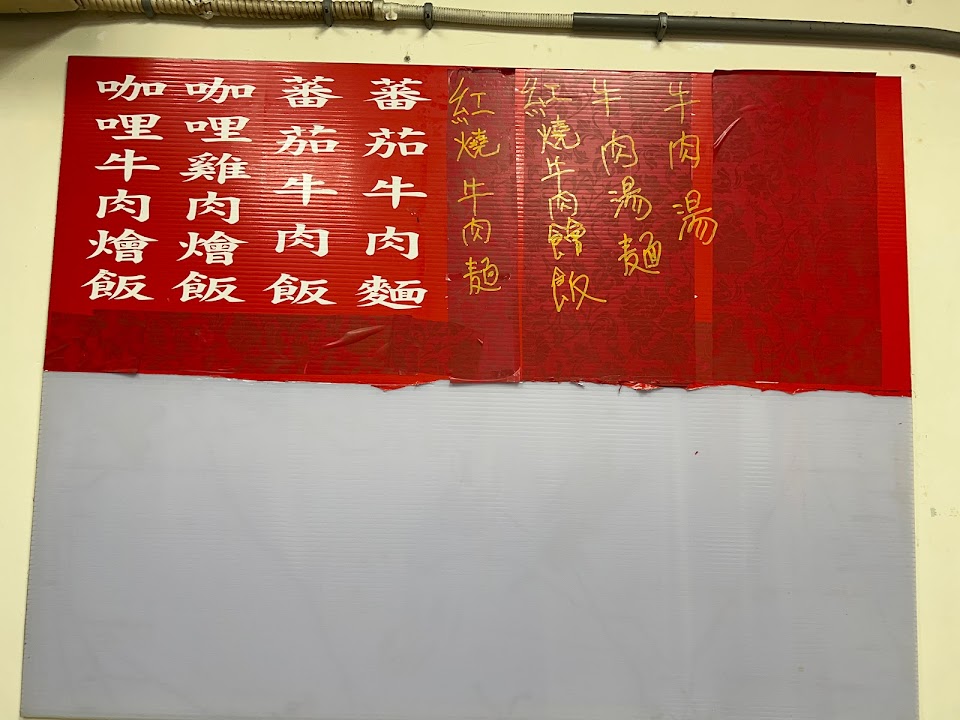 牛肉湯
牛肉湯麵
紅燒牛肉燴飯
紅燒牛肉麵
蕃茄牛肉麵
蕃茄牛肉飯
咖哩雞肉燴飯
咖哩牛肉燴飯